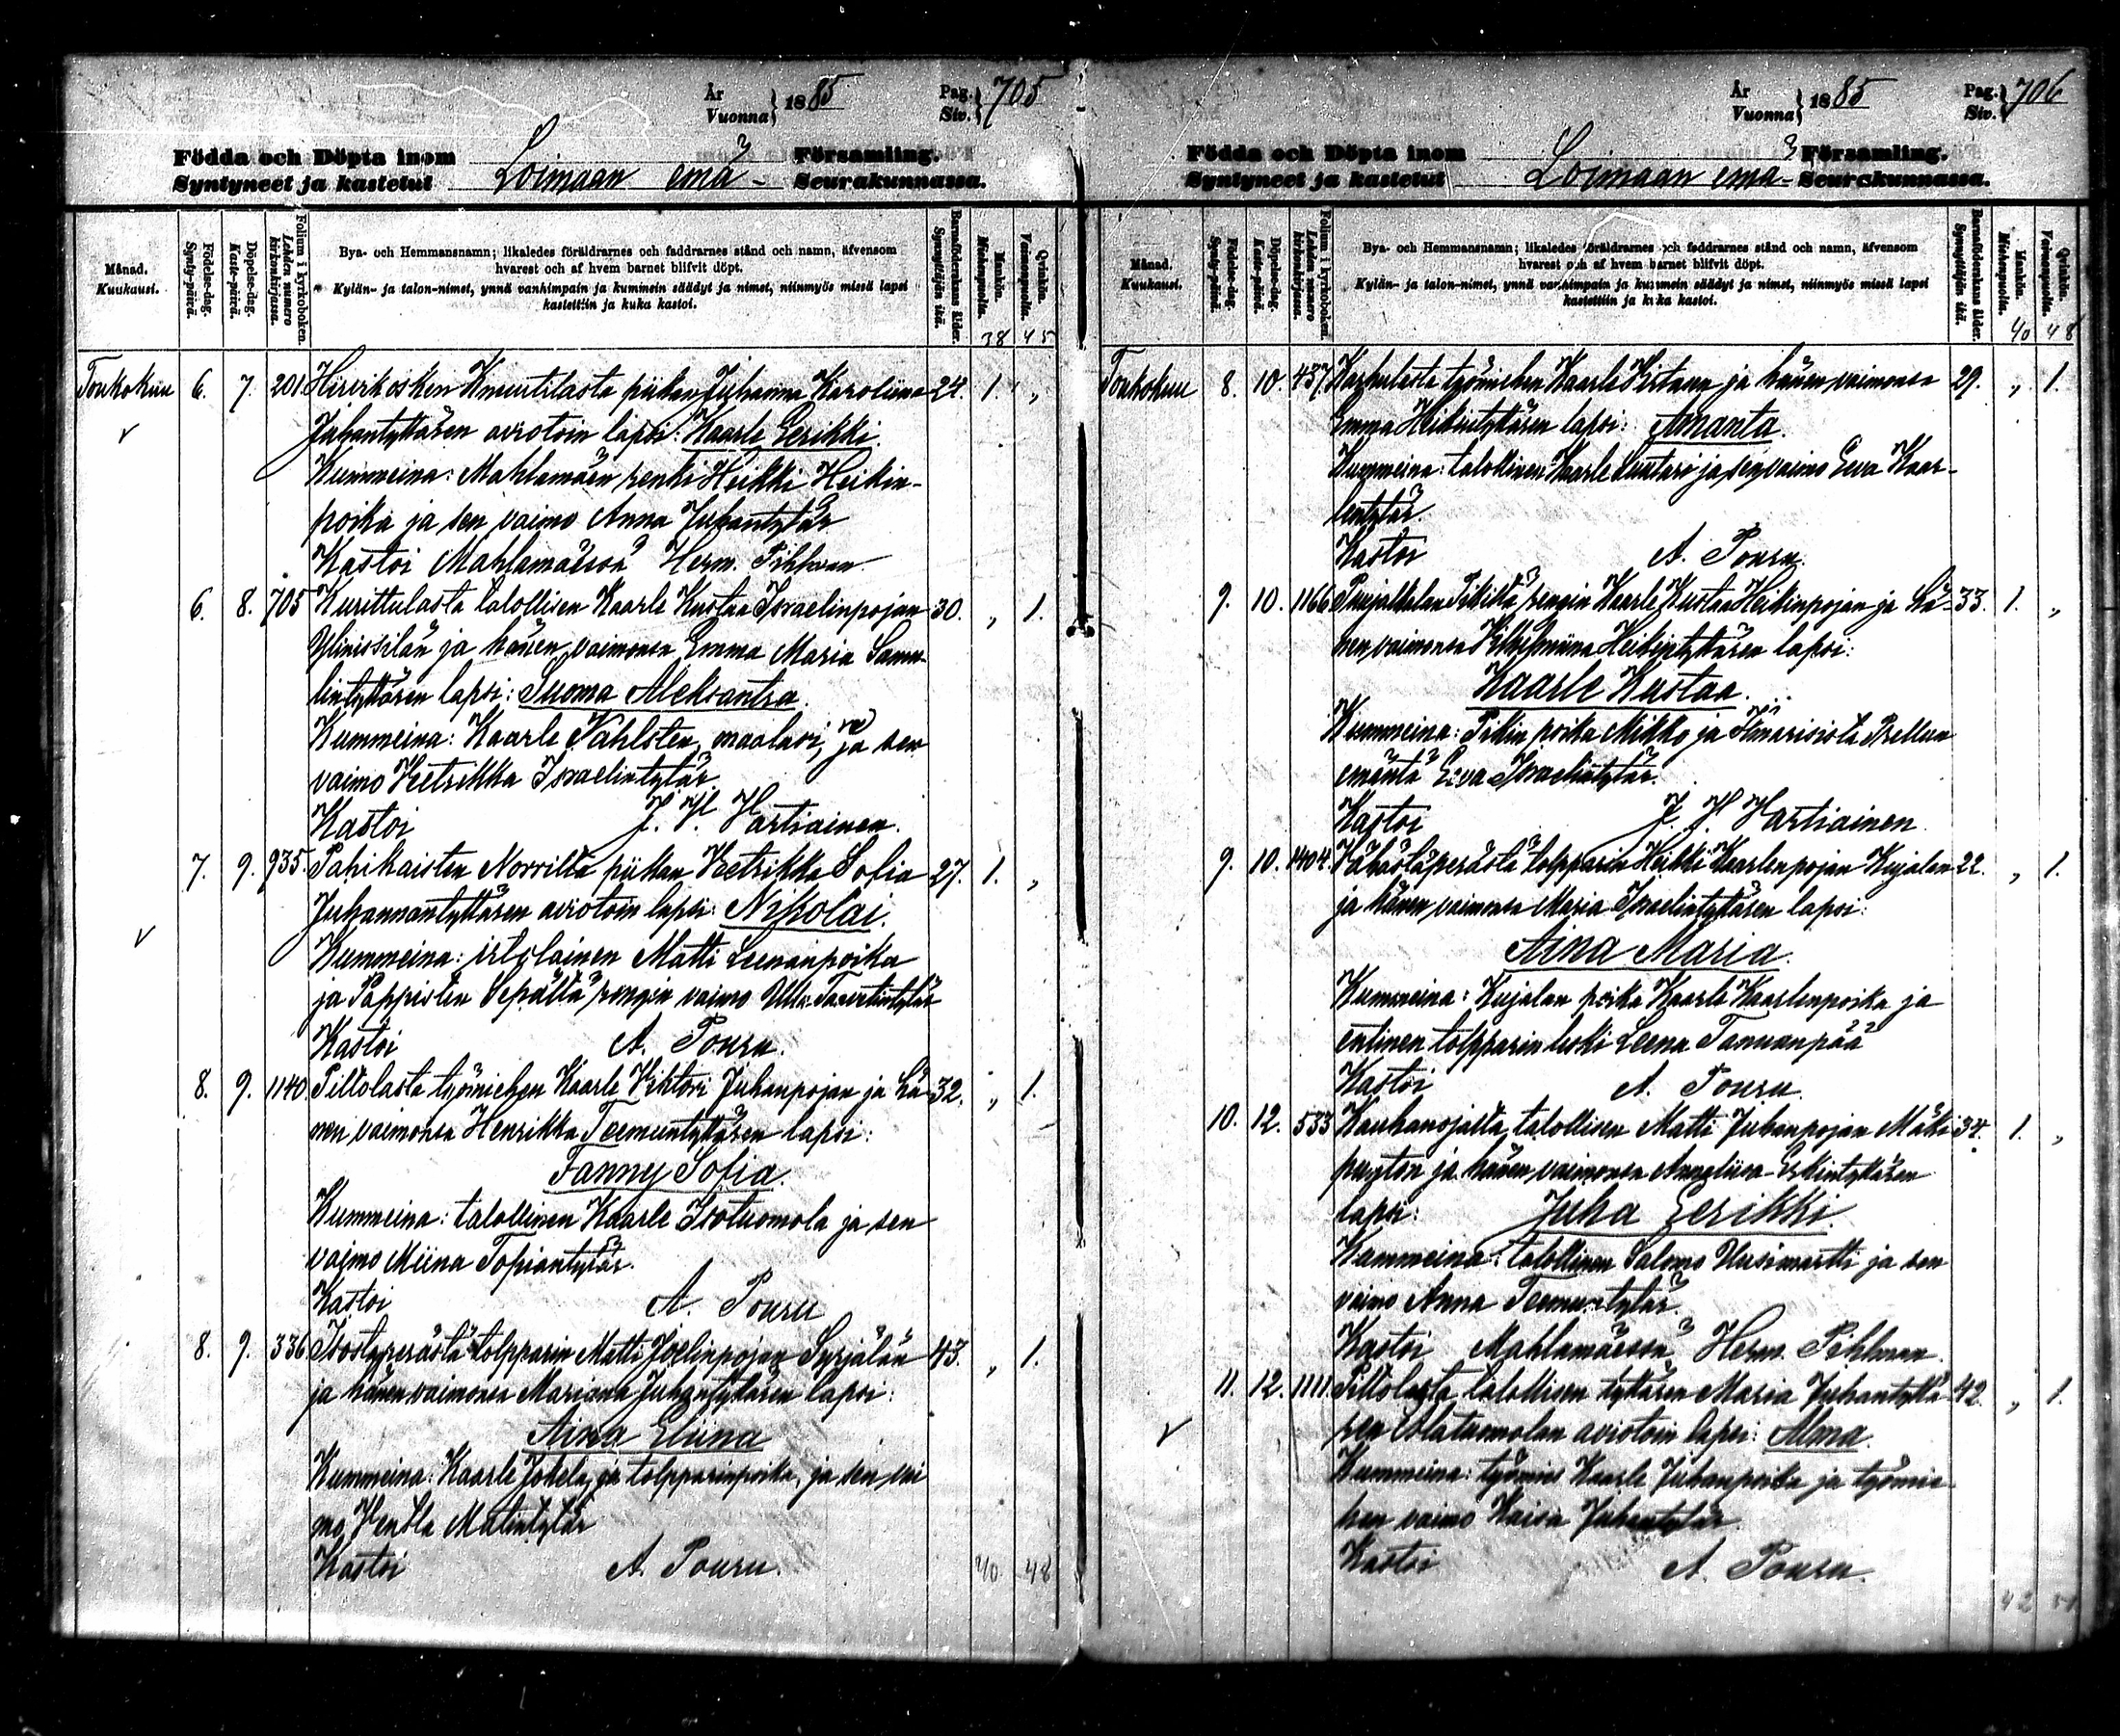 År
Vuonna } 1885
Pag.
Siv. } 705
Födda och Döpta inom
Syntyneet ja kastetut
Loimaan emä-
Församling.
Seurakunnassa.
Månad.
Kuukausi.
Födelse-dag.
Synty-päivä.
Döpelse-dag.
Kaste-päivä.
Folium i kyrkoboken.
Lehden numero kirkonkirjassa.
Bya- och Hemmansnamn; likaledes föräldrarnes och faddrarnes stånd och namn, äfvensom
hvarest och af hvem barnet blifvit döpt.
Kylän- ja talon-nimet, ynnä vanhimpain ja kummein säädyt ja nimet, niinmyös missä lapsi
kastettiin ja kuka kastoi.
Barnaföderskans ålder.
Synnyttäjän ikä.
Mankön.
Miehenpuolia.
Qvinkön.
Vaimonpuolia.
38 45
Toukokuu 6. 7. 201. Hirvikosken Knuutilasta piikan Juhanna Karoliina 24. 1. „
Juhantyttären aviotoin lapsi: Kaarle Eerikki.
Kummeina: Mahlamäen renki Heikki Heikin-
poika ja sen vaimo Anna Juhantytär
Kastoi Mahlamäessä Herm. Pihlman
6. 8. 705 Kurittulasta talollisen Kaarle Kustaa Israelinpojan 30. „ 1.
Ylinissilän ja hänen vaimonsa Emma Maria Samu-
lintyttären lapsi: Suoma Aleksantra.
Kummeina: Kaarle Vahlsten, maalari, ja sen
vaimo Veetrikka Israelintytär.
Kastoi J. V. Vartiainen.
7. 9. 935. Pahikaisten Norrilta piikan Veetrikka Sofia 27. 1. „
Juhannantyttären aviotoin lapsi: Nikolai.
Kummeina: irtolainen Matti Leenanpoika
ja Pappisten Sepältä rengin vaimo Ulla Taavetintytär
Kastoi A. Pouru.
8. 9. 1140. Piltolasta työmiehen Kaarle Vihtori Juhanpojan ja hä- 32. „ 1.
nen vaimonsa Henrikka Teemuntyttären lapsi:
Fanny Sofia.
Kummeina: talollinen Kaarle Isotuomola ja sen
vaimo Miina Topiantytär.
Kastoi A. Pouru
8. 9. 336. torpparin Matti Joelinpojan Syrjälän 43. „ 1.
ja hänen vaimonsa Mariana Juhantyttären lapsi:
Aina Eliina
Kummeina: Kaarle Jokela, torpparinpoika, ja sen vai
mo, Matintytär
Kastoi A. Pouru.
40 48
År
Vuonna } 1885
Pag.
Siv. } 706
Födda och Döpta inom
Syntyneet ja kastetut
Loimaan emä-
Församling.
Seurakunnassa.
Månad.
Kuukausi.
Födelse-dag.
Synty-päivä.
Döpelse-dag.
Kaste-päivä.
Folium i kyrkoboken.
Lehden numero kirkonkirjassa.
Bya- och Hemmansnamn; likaledes föräldrarnes och faddrarnes stånd och namn, äfvensom
hvarest och af hvem barnet blifvit döpt.
Kylän- ja talon-nimet, ynnä vanhimpain ja kummein säädyt ja nimet, niinmyös missä lapsi
kastettiin ja kuka kastoi.
Barnaföderskans ålder.
Synnyttäjän ikä.
Mankön.
Miehenpuolia.
Qvinkön.
Vaimonpuolia.
40 48
Toukokuu 8. 10. 437. Karhulasta työmiehen Kaarle ja hänen vaimonsa 29. „ 1.
Emma Heikintyttären lapsi: Amanta.
Kummeina: talollinen Kaarle Suutari ja sen vaimo Eeva Kaar-
lentytär.
Kastoi A. Pouru.
9. 10. 1166 rengin Kaarle Kustaa Heikinpojan ja hä- 33. 1. „
nen vaimonsa Vilhelmiina Heikintyttären lapsi:
Kaarle Kustaa.
Kummeina: poika Mikko ja Prellun
emäntä Eeva Israelintytär.
Kastoi J. V. Vartiainen
9. 10. 1404. torpparin Heikki Kaarlenpojan Kujalan 22. „ 1.
ja hänen vaimonsa Maria Israelintyttären lapsi:
Aina Maria.
Kummeina: Kujalan poika Kaarle Kaarlenpoika ja
entinen torpparin leski Leena Tanuanpää
Kastoi A. Pouru.
10. 12. 533 Kauhanojalta talollisen Matti Juhanpojan Mäki- 34. 1. „
punton ja hänen vaimonsa Annaliisa Erkintyttären
lapsi: Juha Eerikki.
Kummeina: talollinen Salomo Uusimartti ja sen
vaimo Anna Teemuntytär.
Kastoi Mahlamäessä Herm. Pihlman.
11. 12. 1111. Piltolasta talollisen tyttären Maria Juhantyttä- 42. „ 1.
ren Alatuomolan aviotoin lapsi: Alma.
Kummeina: työmies Kaarle Juhanpoika ja työmie-
hen vaimo Kaisa Juhantytär.
Kastoi A. Pouru.
42